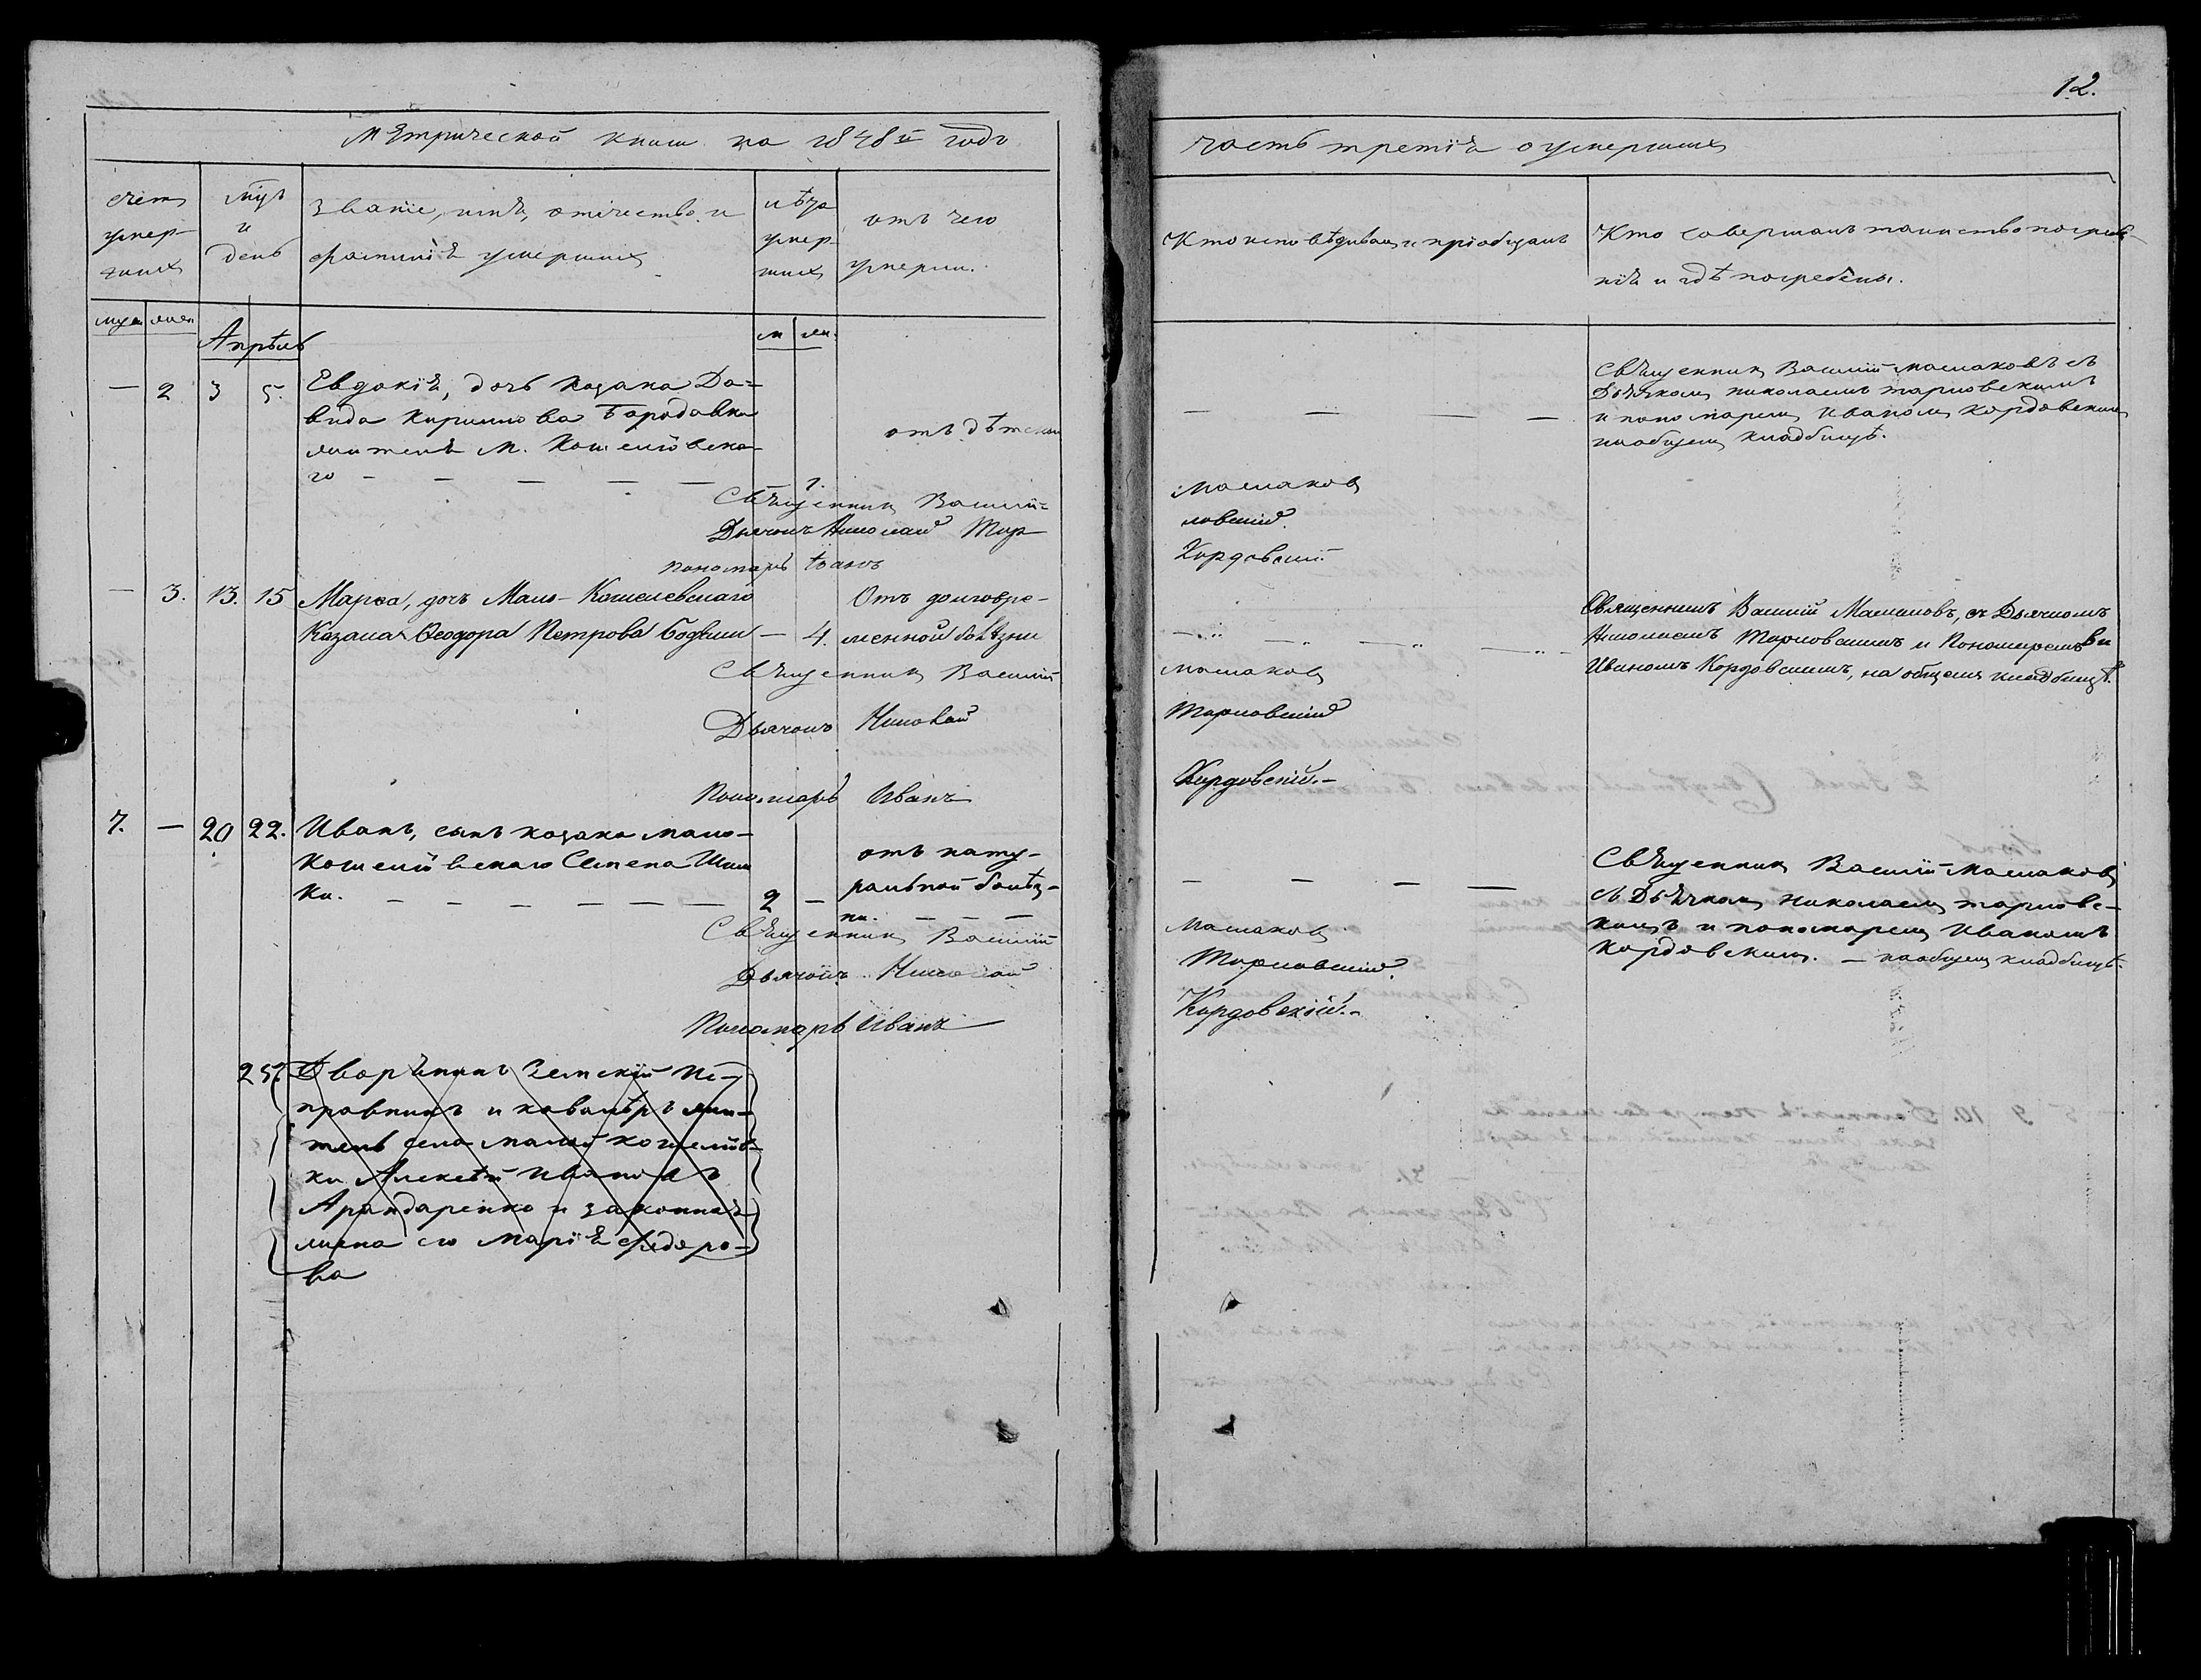 12.
Мѣтрической книги на 1848й годъ
часть третія о умершихъ
счетъ умер-шихъ
мцъ и день
званіе, имя, отичество и фамилія умершихъ
лѣта умер-шихъ
отъ чего умерли.
Кто исповѣдивалъ и пріобщалъ
Кто совершалъ таинство погребе-
нія и гдѣ погребены.
муж жен
Апрѣль
м жен.
— 2 3 5. Евдокія, дочь козака Да=
вида Кириллова Бородавки
жителя М. Кошелювска-
го — — — — — 1.
отъ дѣтской
— — — —
Священникъ Василій Маслаковъ съ
Дьячкомъ николаемъ тарловскимъ
и пономаремъ Иваномъ Кордовскимъ
наобщемъ кладбищѣ.
Священникъ Василій Маслаковъ
Дьячокъ Николай Тарловский
пономарь Іванъ Кордовскій
— 3. 13. 15 Марѳа, дочь Мало-Кошелевскаго
Козака Ѳеодора Петрова — 4.
Отъ долговре-
менной болѣзни
Священникъ Василій Маслаковъ, съ Дьячкомъ
Николаемъ Тарловскимъ и Пономаремъ
Иваномъ Кордовскимъ, на общемъ кладбищѣ.
Священникъ Василій Маслаковъ
Дьячокъ Николай Тарловский
Пономарь Иванъ Кордовскій.-
7. — 20 22. Иванъ, сынъ козака мало-
кошелювскаго Семена Шиш
ки. — — — — — — 2 —
отъ нату-
ральной болѣз-
ни. — — —
— — — —
Священникъ Василій Маслаковъ
съ Дьячкомъ николаемъ тарловс-
кимъ и пономаремъ Иваномъ
Кордовскимъ. — наобщемъ кладбищѣ.
Священникъ Василій Маслаковъ
Дьячокъ Николай Тарловский.
Пономарь Иванъ Кордовскій.-
25. Дворянинъ Земскій Ис-
правникъ и кавалѣръ жи-
тель села малой кошелюв-
ки Алексѣй Ивановъ
Арандаренко и законная
жена его Марія Фэдоро-
ва